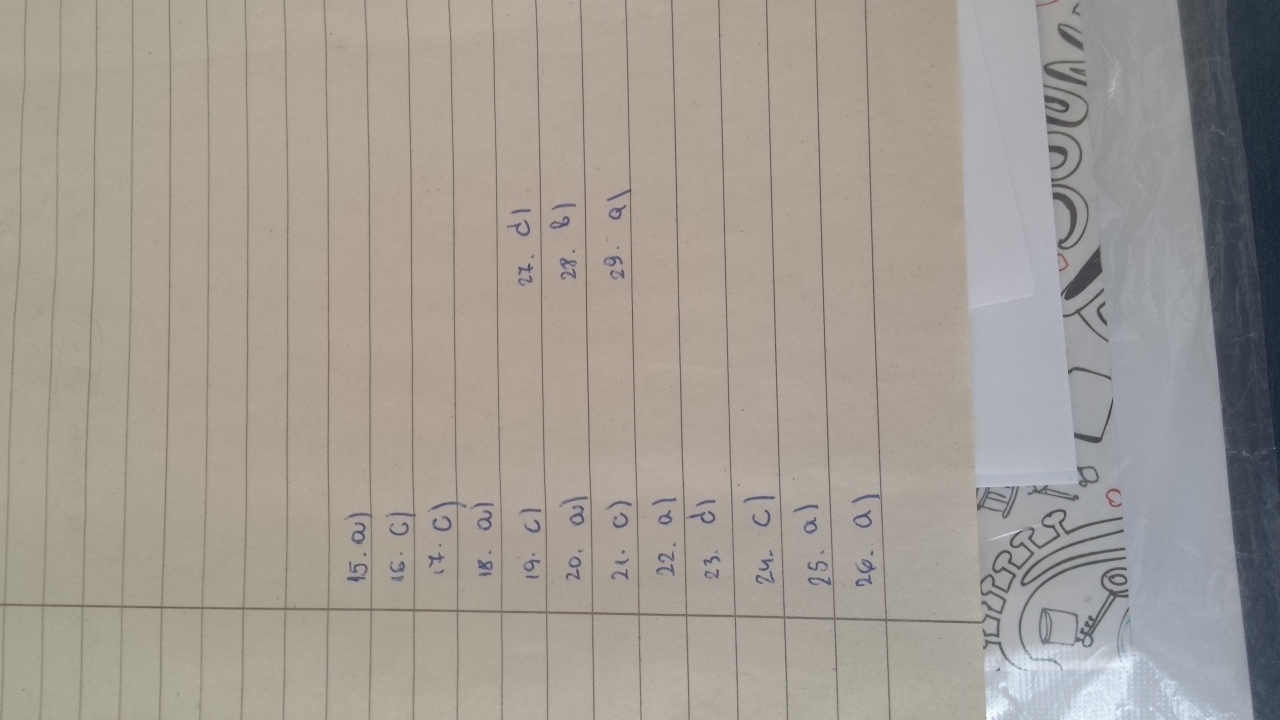 15. a)
16. c)
17. c)
18. a)
19. c)
20. a)
21. c)
22. a)
23. d)
24. c)
25. a)
26. a)
27. d)
28. b)
29. a)